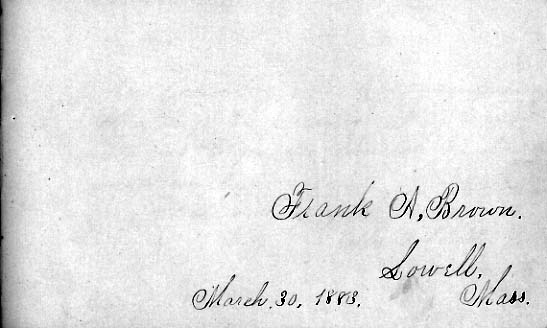 Frank A, Brown.
Lowell,
March, 30, 1883. Mass.